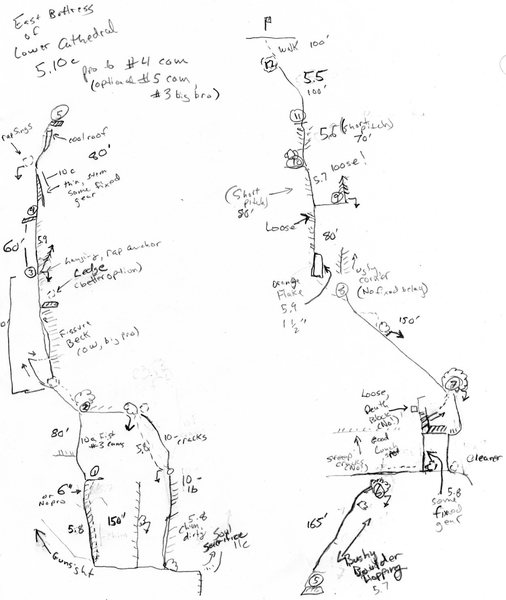 East Buttress
of
Lower Cathedral
5.10c
pro to #4 cam
(optional #5 cam
#3 big bro)
5
rap slings
cool roof
80'
10c
thin, some
fixed
gear
4
60'
5.9
3
hanging, rap anchor
Ledge
(better option)
Fissure
Beck
(ow, big pro)
2
80'
10a fist
#3 cams
5.8
10-
cracks
1
6"
or
No pro
5.8
150'
10-
lb
5.8
chim,
dirty
Soul
Sacrifice
11c
Gunsight
Walk 100'
12
5.5
100'
11
5.6 (short
pitch)
70'
10
5.7
loose!
9
(short
pitch)
80'
Loose
80'
orange
Flake
5.9
1 1/2"
ugly
corridor
(No fixed belay)
8
150'
7
Loose,
Death
Block
(No!)
Good
Lunch
spot
steep
cracks
(No!)
cleaner
5.8
some
fixed
gear
6
165'
Bushy
Boulder
Hopping
5.7
5